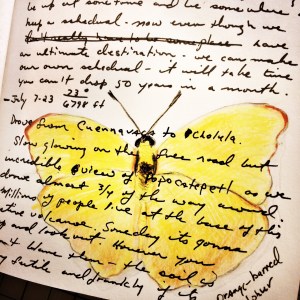 be up at sometime and be some where
keep a schedual - now even though we
have
an ultimate destination - we can make
our own schedual - it will take time
you can't drop 50 years in a month.
- July 7-23 23° 6798 ft
Drove from Cuernavaca to Cholula.
Slow glowing on the free road but
incredible views of Popocatepetl as we
drove almost 3/4 of the way around.
Millions of people live at the base of this
active volcano. Someday its gonna
and look out. However you
can't blame them the soil is
fertile and
orange-barred